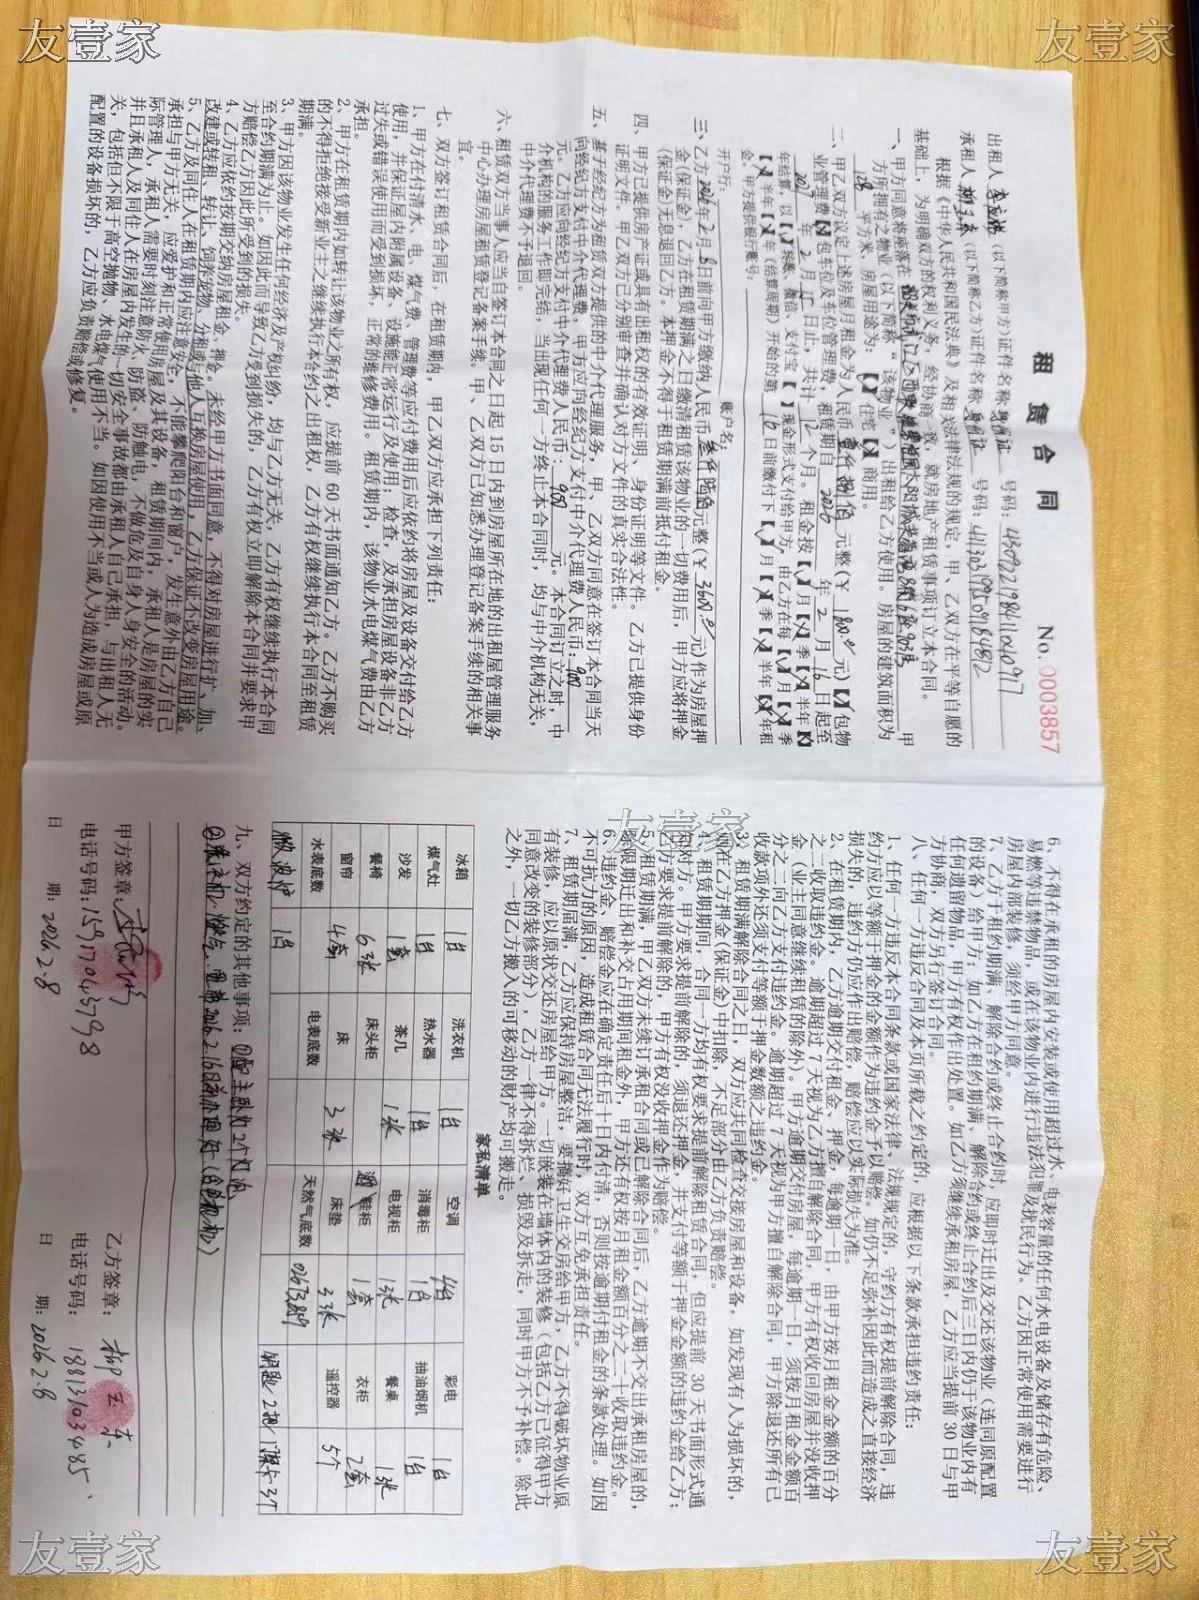 友壹家
友壹家
租赁合同
No. 0003857
出租人 (以下简称甲方)证件名称 身份证 号码:
承租人 (以下简称乙方)证件名称 身份证 号码:
根据《中华人民共和国民法典》及相关法律法规的规定,甲、乙双方在平等自愿的
基础上,为明确双方的权利义务,经协商一致,就房地产租赁事项订立本合同。
一、甲方同意将座落在 甲
方所拥有之物业(以下简称“该物业”)出租给乙方使用。房屋的建筑面积为
128 平方米,房屋用途为:【】住宅【】商用。
二、甲乙双方议定上述房屋月租金为人民币 壹仟捌佰 元整(¥ 1800 元)【】包物
业管理费【】包车位及车位管理费,租赁期自 2026 年 2 月 16 日起至
2027 年 2 月 15 日止,共计 12 个月。租金按【】月【】季【】半年【】年租
年结算,以【】转账、微信、支付宝【】现金形式支付给甲方,由乙方在每【】月【】季
【】半年【】年(结算周期)开始的第 10 日前缴付下【】月【】季【】半年【】年租
金。甲方提供银行账号:
开户行: 账户名:
三、乙方 2026 年 2 月 8 日前向甲方缴纳人民币 叁仟陆佰 元整(¥ 3600 元)作为房屋押
金(保证金),乙方在租赁期满之日缴清租赁该物业的一切费用后,甲方应将押金
(保证金)无息退回乙方。本押金不得于租赁期满前抵付租金。
四、甲方已提供房产证或具有出租权的有效证明、身份证等文件。乙方已提供身份
证明文件。甲乙双方已分别审查并确认对方文件的真实合法性。
五、基于经纪方为租赁双方提供的中介代理服务,甲、乙双方同意在签订本合同当天
向经纪方支付中介代理费,甲方应向经纪方支付中介代理费人民币: 900
元。乙方应向经纪方支付中介代理费人民币: 900 元。本合同订立之时,中
介机构的服务工作即完结,当出现任何一方终止本合同时,均与中介机构无关,
中介代理费不予退回。
六、租赁双方当事人应当自签订本合同之日起 15 日内到房屋所在地的出租屋管理服务
中心办理房屋租赁登记备案手续。甲、乙双方已知悉办理登记备案手续的相关事
宜。
七、双方签订租赁合同后,在租赁期内,甲乙双方应承担下列责任:
1、甲方在付清水、电、煤气费、管理费等应付费用后应依约将房屋及设备交付给乙方
使用,并保证屋内附属设备、设施能正常运行及使用;检查,及承担房屋设备非乙方
过失或错误使用而受到损坏,正常的维修费用。租赁期内,该物业水电煤气费由乙方
承担。
2、甲方在租赁期内如转让该物业之所有权,应提前 60 天书面通知乙方。乙方不购买
的不得拒绝接受新业主之继续执行本合约之出租权,乙方有权继续执行本合同至租赁
期满。
3、甲方因该物业发生任何经济及产权纠纷,均与乙方无关,乙方有权继续执行本合同
至合约期满为止。如因此而导致乙方受到损失的,乙方有权立即解除本合同并要求甲
方赔偿乙方因此所受到的损失。
4、乙方应依约按期交纳房屋租金、押金。未经甲方书面同意,不得对房屋进行扩、加、
改建或转租、转让、饲养宠物、分租或与他人互换房屋使用,乙方保证不改变房屋用途。
5、乙方及同住人在租赁期内应注意安全,不能攀爬阳台和窗户,发生意外由乙方自己
承担与甲方无关,应爱护和正常使用房屋及其设备,租赁期间内,承租人是房屋的实
际管理人,承租人需要时刻注意防火、防盗、防触电,不做危及自身人身安全的活动,
并且承租人及同住人在房屋内发生的一切安全事故都由承租人自己承担,与出租人无
关,包括但不限于高空抛物、水电煤气使用不当。如因使用不当或人为造成房屋或原
配置的设备损坏的,乙方应负责赔偿或修复。
6、不得在承租的房屋内安装或使用超过水、电表容量的任何水电设备及储存有危险、
易燃等违禁物品,或在该物业内进行违法犯罪及扰民行为。乙方因正常使用需要进行
房屋内部装修,须经甲方同意。
7、乙方于租约期满、解除合约或终止合约时,应即时迁出及交还该物业(连同原配置
的设备)给甲方;如乙方在租约期满、解除合约或终止合约后三日内仍于该物业内有
任何遗留物品,甲方有权作出处置。如乙方须继续承租房屋,乙方应当提前 30 日与甲
方协商,双方另行签订合同。
八、任何一方违反合同及本页所载之约定的,应根据以下条款承担违约责任:
1、任何一方违反本合同条款或国家法律、法规规定的,守约方有权提前解除合同,违
约方应以等额于押金的金额作为违约金予以赔偿。如仍不足弥补因此而造成之直接经济
损失的,违约方仍应作出赔偿,赔偿应以实际损失为准。
2、在租赁期内,乙方逾期交付租金、押金,每逾期一日,由甲方按月租金金额的百分
之二收取违约金。逾期超过 7 天视为乙方擅自解除合同,甲方有权收回房屋并没收押
金(业主同意继续租赁的除外)。甲方逾期交付房屋,每逾期一日,须按月租金金额百
分之二向乙方支付违约金。逾期超过 7 天视为甲方擅自解除合同,甲方除退还所有已
收款项外还须支付等额于押金数额之违约金。
3、租赁期满解除合同之日,双方应共同检查交接房屋和设备,如发现有人为损坏的,
则在乙方押金(保证金)中扣除,不足部分由乙方负责赔偿。
4、租赁期期间,合同一方均有权要求提前解除租赁合同,但应提前 30 天书面形式通
知对方。甲方要求提前解除的,须退还押金,并支付等额于押金金额的违约金给乙方;
乙方要求提前解除的,甲方有权没收押金作为赔偿。
5、租赁期满,甲乙双方未续订承租合同或已解除合同后,乙方逾期不交出承租房屋的,
除限期迁出和补交占用期间租金外,甲方还有权按月租金额百分之二十收取违约金。
6、违约金、赔偿金应在确定责任后十日内付清,否则按逾期付租金的条款处理。如因
不可抗力的原因,造成租赁合同无法履行时,双方互免承担责任。
7、租赁期届满,乙方应保持房屋整洁,要搞好卫生交房给甲方,乙方不得破坏物业原
有装修,应以原状交还房屋给甲方。一切嵌装在墙体内的装修(包括乙方已征得甲方
同意改变的装修部分),乙方一律不得拆烂、损毁及拆走,同时甲方不予补偿。除此
之外,一切乙方搬入的可移动的财产均可搬走。
友壹家
家私清单
冰箱 1台 洗衣机 1台 空调 4台 彩电 1台
煤气灶 1台 热水器 1台 消毒柜 1台 抽油烟机 1台
沙发 1套 茶几 1张 电视柜 1张 餐桌 1张
餐椅 6张 床头柜 鞋柜 1套 衣柜 2套
窗帘 4套 床 3张 床垫 3张 遥控器 5个
水表底数 电表底数 天然气底数
微波炉 1台
九、双方约定的其他事项:①配主卧灯2个灯泡
甲方签章: 乙方签章:
电话号码:15917045798 电话号码:18813103485
日 期:2026.2.8 日 期:2026.2.8
友壹家
友壹家